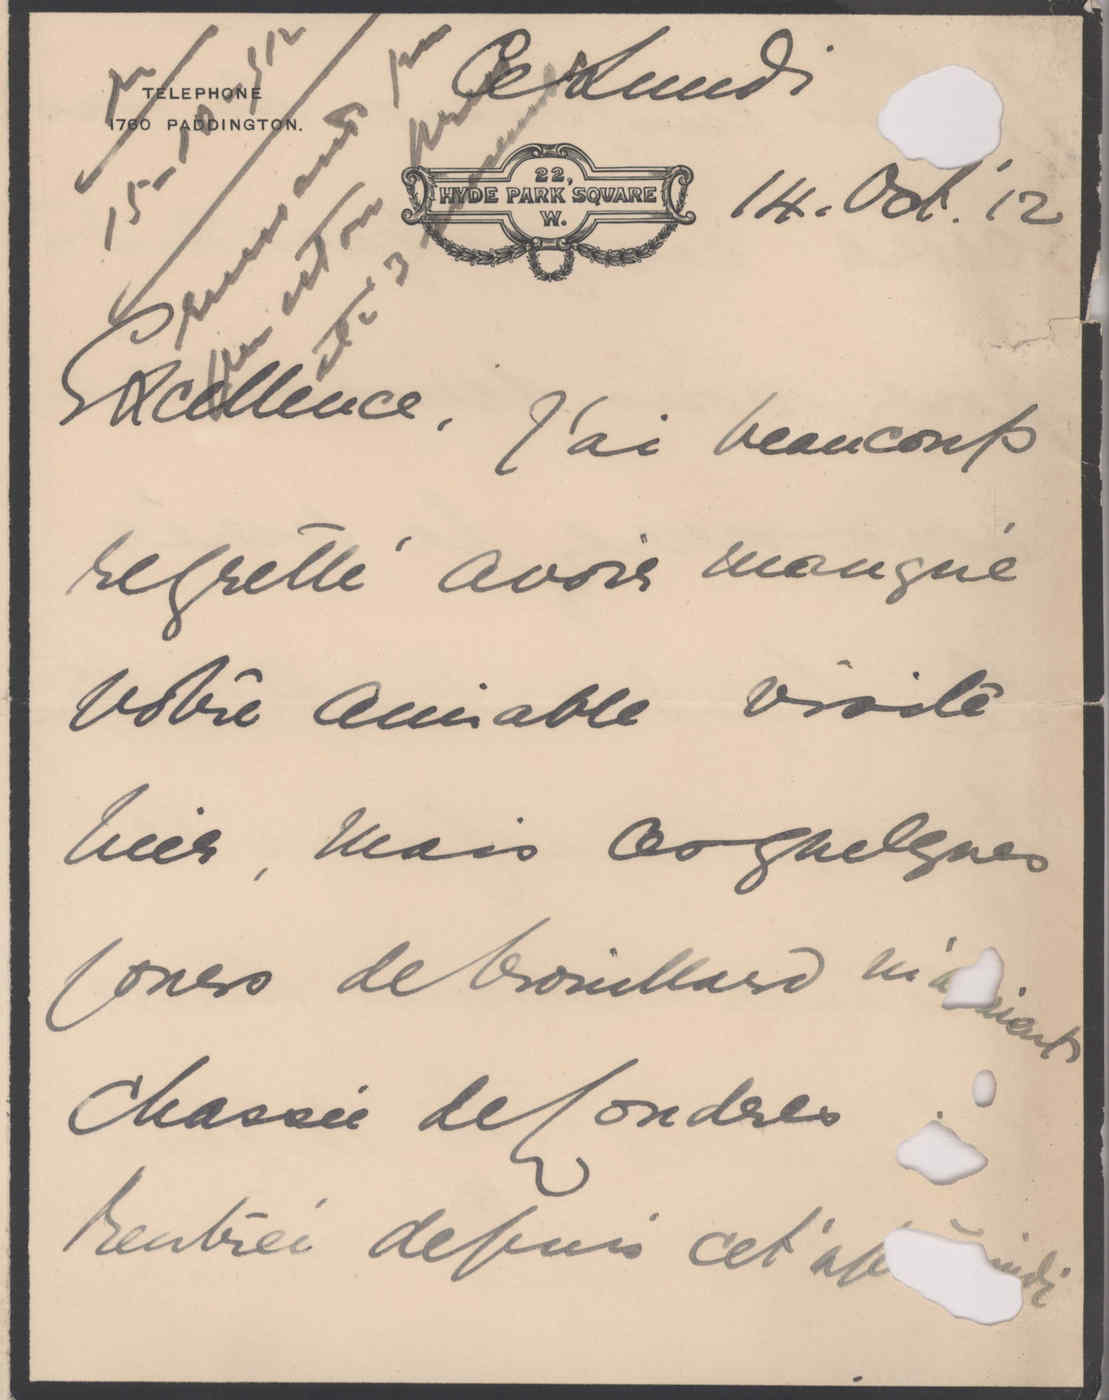 Ce Lundi
TELEPHONE
1760 PADDINGTON.
22,
HYDE PARK SQUARE
W.
14. Oct. '12
15-10-912
Excellence, J'ai beaucoup
regretté avoir manqué
votre aimable visite
hier, mais ces quelques
jours de brouillard m'a
chassée de Londres
Rentrée depuis cet'